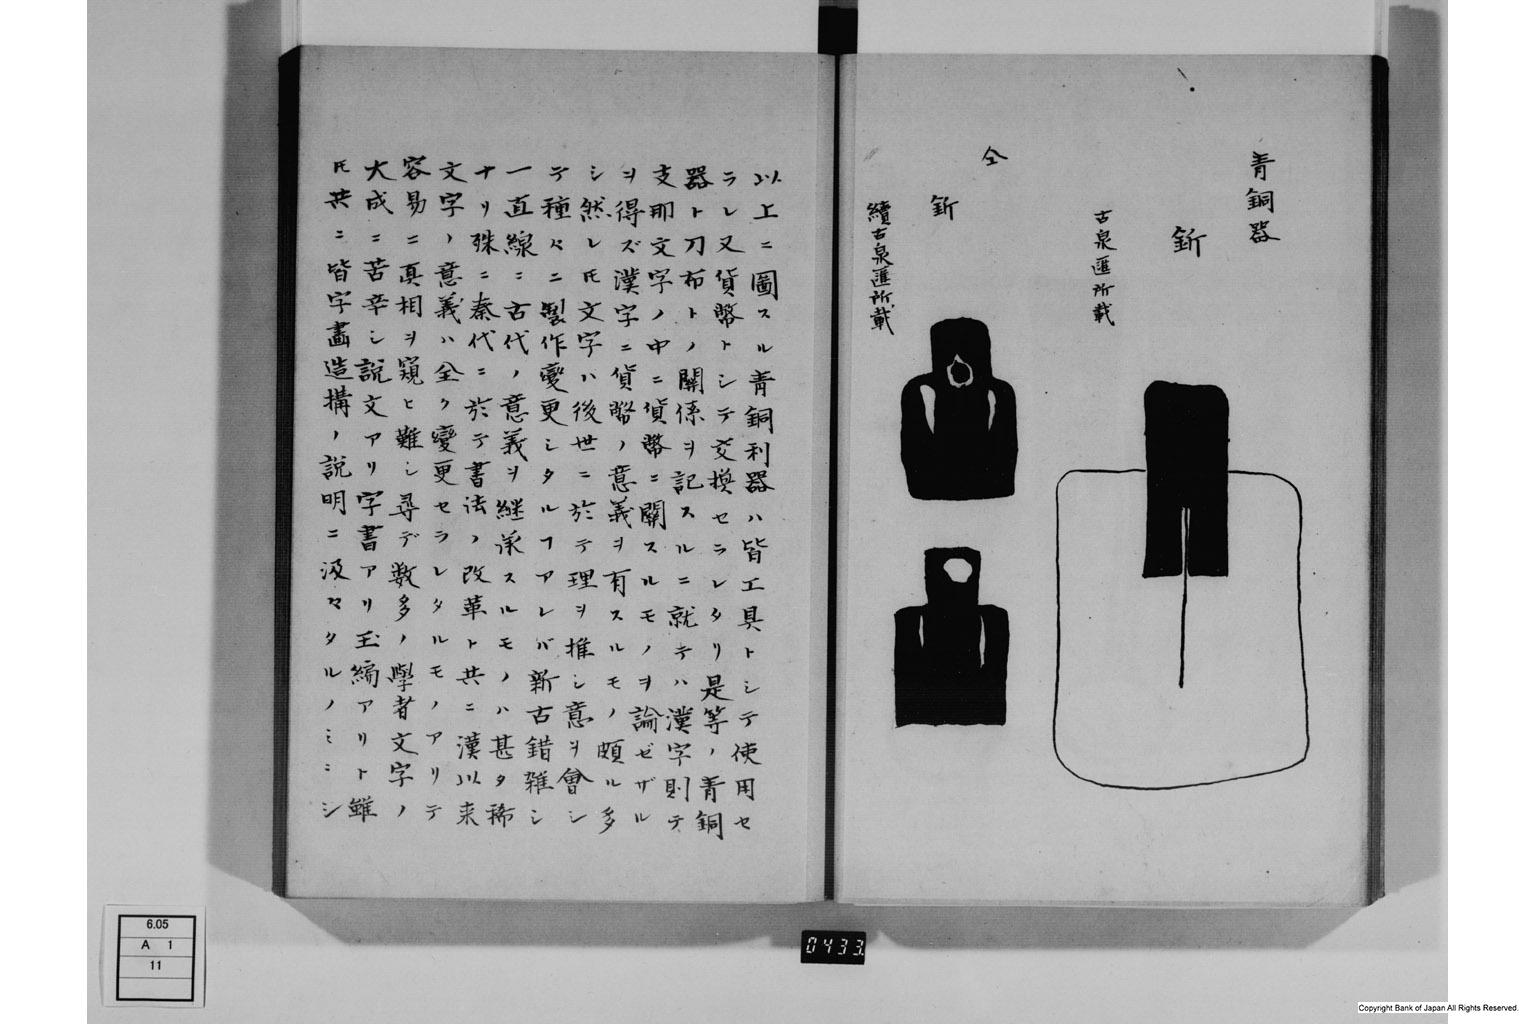 青銅器
釿
古泉匯所載
仝
釿
續古泉匯所載
以上ニ圖スル青銅利器ハ皆工具トシテ使用セ
ラレ又貨幣トシテ交換セラレタリ是等ノ青銅
器ト刀布トノ關係ヲ記スルニ就テハ漢字則テ
支那文字ノ中ニ貨幣ニ關スルモノヲ論ゼザル
ヲ得ズ漢字ニ貨幣ノ意義ヲ有スルモノ頗ル多
シ然レ𪜈文字ハ後世ニ於テ理ヲ推シ意ヲ會シ
テ種々ニ製作變更シタルヿアレバ新古錯雑シ
一直線ニ古代ノ意義ヲ継承スルモノハ甚タ稀
ナリ殊ニ秦代ニ於テ書法ノ改革ト共ニ漢以来
文字ノ意義ハ全ク變更セラレタルモノアリテ
容易ニ真相ヲ窺ヒ難シ尋デ数多ノ學者文字ノ
大成ニ苦辛シ説文アリ字書アリ玉編アリト雖
𪜈共ニ皆字畵造構ノ説明ニ汲々タルノミニシ
6.05
A 1
11
0433
Copyright Bank of Japan All Rights Reserved.